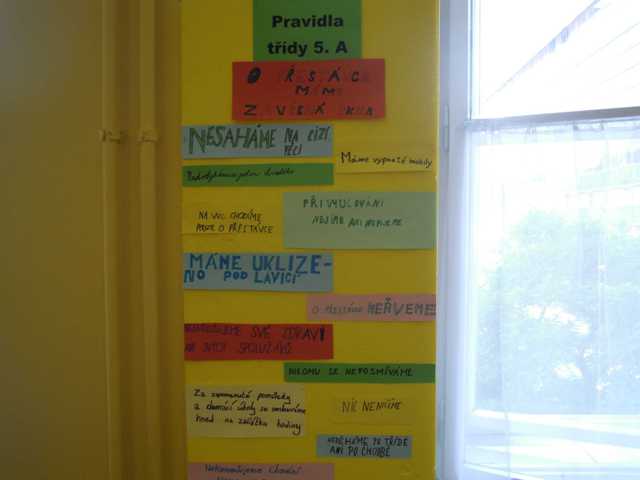 Pravidla
třídy 5. A
O PŘESTÁVCE
MÁME
ZAVŘENÁ OKNA
NESAHÁME NA CIZÍ
VĚCI
Máme vypnuté mobily
NA WC CHODÍME
POUZE O PŘESTÁVCE
PŘI VYUČOVÁNÍ
NEJÍME ANI NEPIJEME
MÁME UKLIZE-
NO POD LAVICÍ
O PŘESTÁVCE NEŘVEME
SVÉ ZDRAVÍ
SPOLUŽÁKŮ
NIKOMU SE NEPOSMÍVÁME
Za zapomenuté pomůcky
a domácí úkoly se omlouváme
hned na začátku hodiny
NIC NENIČÍME
NEBĚHÁME PO TŘÍDĚ
ANI PO CHODBĚ
Nekomentujeme chování